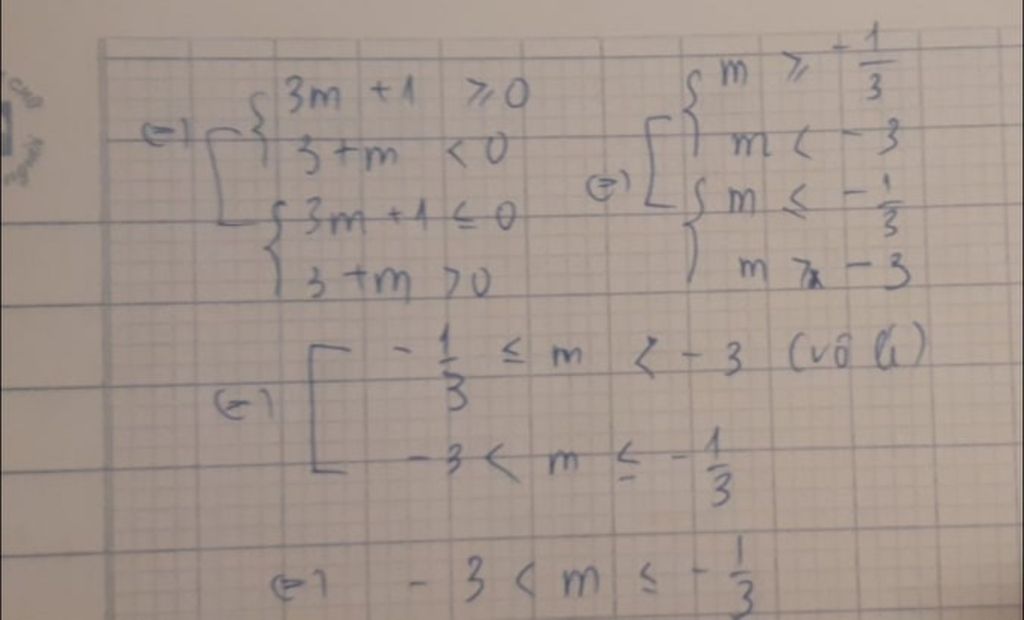 ⇔ [ { 3m + 1 ≥ 0
3 + m < 0
{ 3m + 1 ≤ 0
3 + m > 0
⇔ [ { m ≥ -1/3
m < -3
{ m ≤ -1/3
m > -3
⇔ [ -1/3 ≤ m < -3 (vô lí)
-3 < m ≤ -1/3
⇔ -3 < m ≤ -1/3